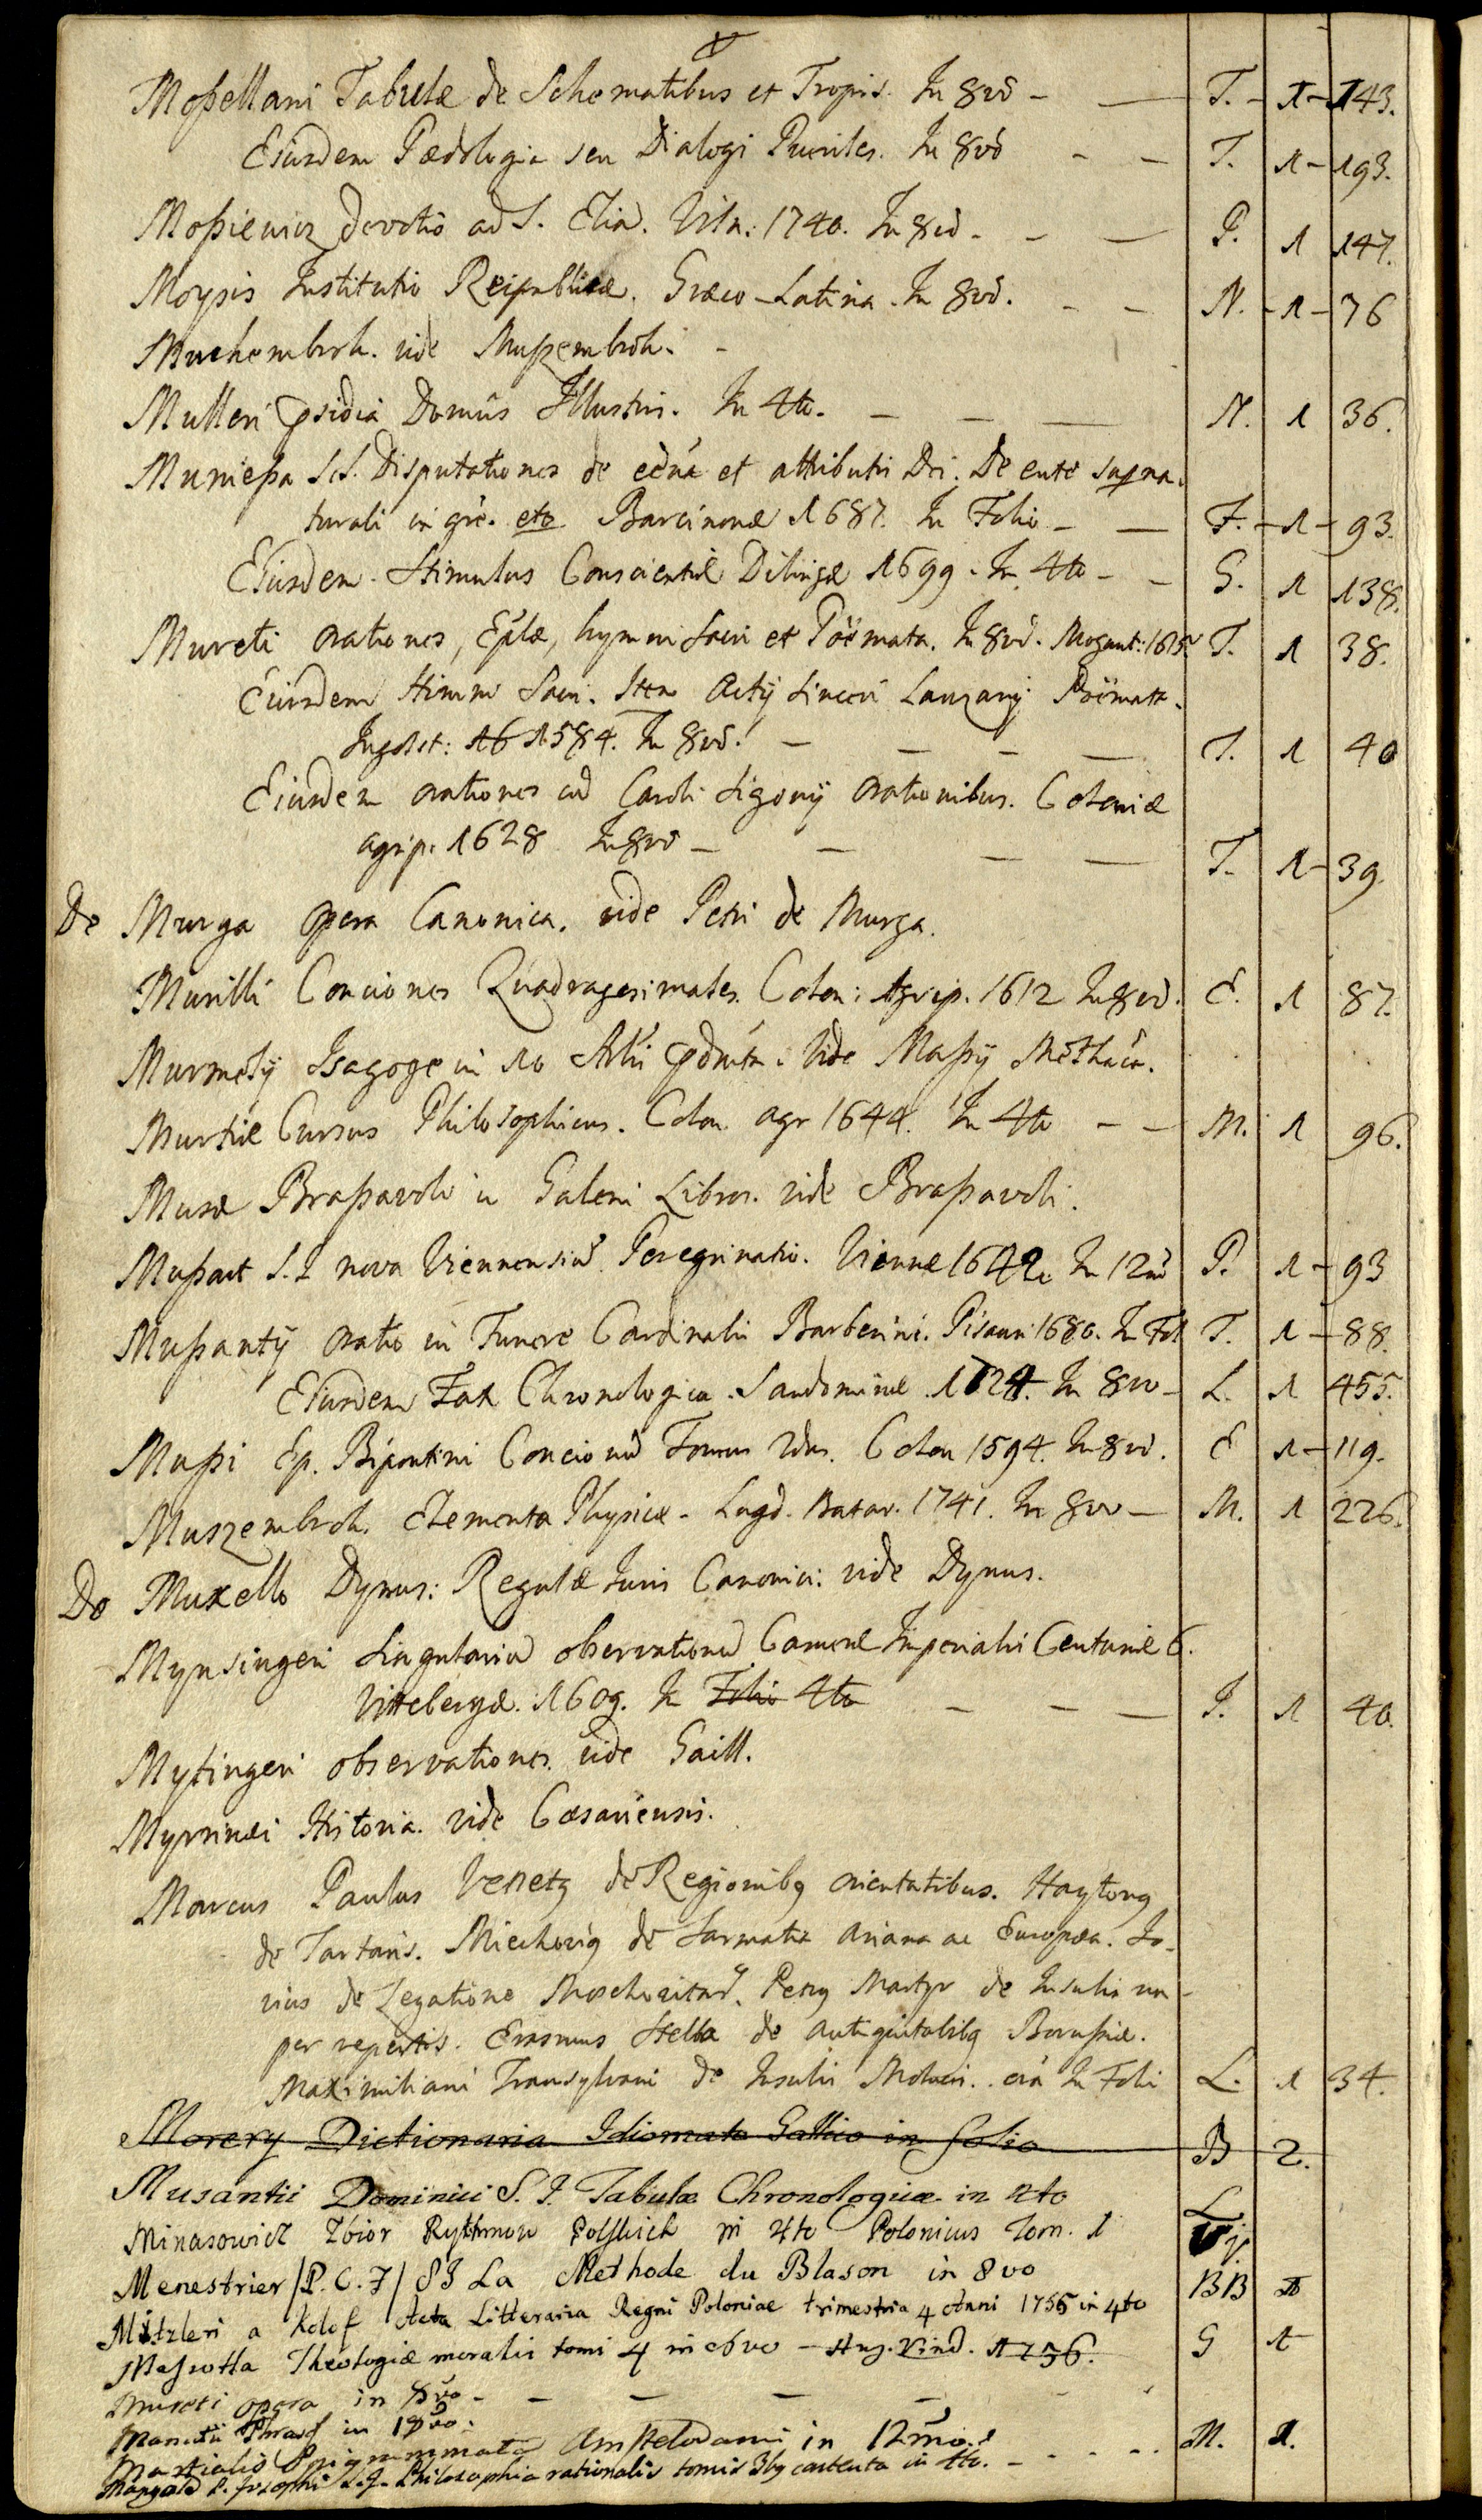 Moßellani Tabulæ de Schematibus et Tropis. In 8vo - — T. - 1 - 143.
Eiusdem Pædologia seu Dialogi Pueriles. In 8vo - - T. 1 - 193.
Moßiewicz devotio ad S. Elia. Viln: 1740. In 8vo - - — P. 1 147.
Moysis Institutio Reipublicæ. Græco-Latina. In 8vo. - - N. - 1 - 76
Muchembroh. vide Mußembroh. -
Mulleri Domûs Illustris. In 4to. - - — N. 1 36.
Munießa S. J. Disputationes de et attributis Dei. De ente supna-
turali in gñe. etc Barcinonæ 1687. In Folio - — F. - 1 - 93.
Eiusdem Stimulus Conscientiæ Dilingæ 1699. In 4to - - G. 1 138.
Mureti orationes, Eplæ, hymni Sacri et Poëmata. In 8vo. Mogunt: 1615. T. 1 38.
Eiusdem Himni Sacri. Item Actij Sinceri Poëmata.
Ingolst: 1584. In 8vo. - - - - T. 1 40
Eiusdem orationes cũ Caroli Sigonij orationibus. Coloniæ
agrip. 1628 In 8vo - - - - T. 1 - 39.
De Murga opera Canonica. vide Petri de Murga.
Murilli Conciones Quadragesimales. Colon: Agrip. 1612 In 8vo. E. 1 87.
Murmelij Isagoge in 10 vide Maßij
Murtiæ Cursus Philosophicus. Colon. agr 1644. In 4to - - M. 1 96.
Musæ Braßavoli in Galeni Libros. vide Braßavoli.
Mußart S. J nova Viennensiũ Peregrinatio. Viennæ 1642. In 12mo P. 1 - 93
Mußantij oratio in Funere Cardinalis Barberini. Pisauri 1680. In Fol T. 1 - 88.
Eiusdem Fax Chronologica. Sandomiriæ 1724. In 8vo - L. 1 455.
Mußi Ep. Bipontini Concionũ Tomus 2dus. Colon 1594. In 8vo. E 1 - 119.
Muszembroh. Elementa Physicæ - Lugd. Batav. 1741. In 8vo - M. 1 226.
De Muxello Dynus: Regulæ Juris Canonici: vide Dynus.
Mynsingeri Singulariũ observationũ Cameræ Imperialis Centuriæ 6.
Vittebergæ. 1609. In Folio 4to - - — J. 1 40.
Mytingeri observationes. vide Gaill.
Myrsinæi Historia. vide Cæsariensis.
Marcus Paulus Venetg de Regionibg orientalibus. Haytong
de Tartaris. Miechovig de Sarmatia Asiana ac Europæa. Jo-
vius de Legatione Moschovitarũ. Petrg Martyr de Insulis nu-
per repertis. Erasmus Stella de antiquitatibg Borußiæ.
Maximiliani Transylvani de Insulis Moluccis. In Folio L. 1 34.
Morery Dictionaria Idiomate Gallico in folio B 2.
Musantii Dominici S. J. Tabulæ Chronologicæ in 4to L
Minasowicz Zbior Rythmow Polskich in 4to Polonicus Tom. 1
Menestrier /P. C. F/ SJ La Methode du Blason in 8vo BB
Mitzleri a Kolof Acta Litteraria Regni Poloniae trimestria 4 Anni 1755 in 4to G 1
Maßotta Theologiæ moralis tomi 4 in 8vo - Aug. Vind. 1756.
Mureti opera in 8vo - - - - -
Manutii Phras in 18vo.
Martialis Epigrammata Amstelodami in 12mo. - - - M. 1.
Mangold P. Josephi S. J. Philosophia rationalis tomis 3bg contenta in 4to. -